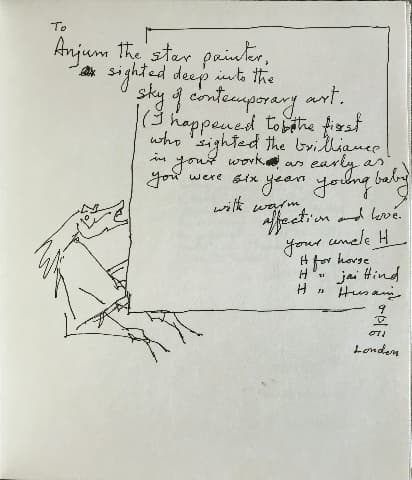 To
Anjum the star painter,
sighted deep into the
sky of contemporary art.
(I happened to be the first
who sighted the brilliance
in your work as early as
you were six years young baby)
with warm
affection and love.
your uncle H
H for horse
H " jai Hind
H " Husain
9
V
011
London